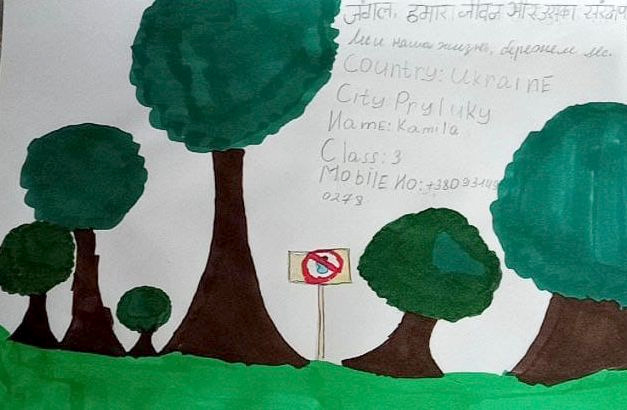 जंगल, हमारा जीवन और उसका संरक्षण
наша жизнь, бережем лес.
Country: Ukraine
City Pryluky
Name: Kamila
Class: 3
Mobile No:
0278